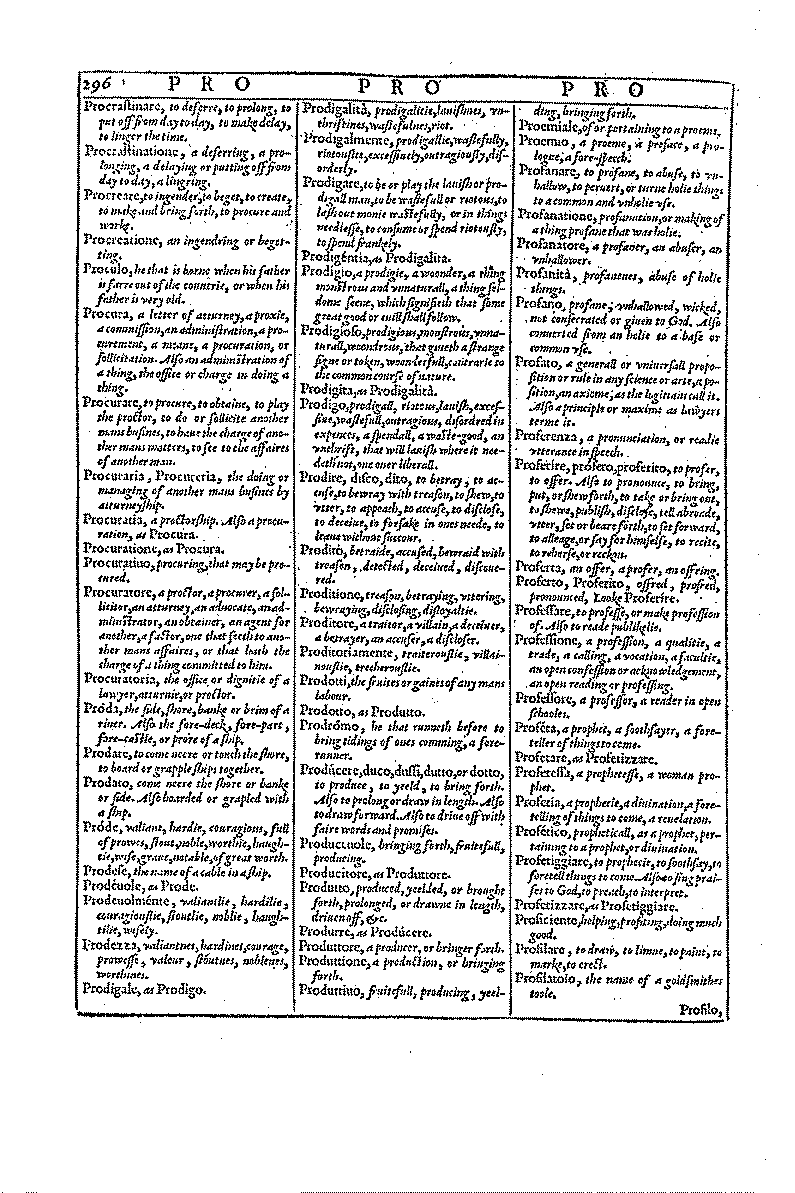 296 P R O P R O P R O
Procrastinare, to deferre, to prolong, to
put off from day to day, to make delay,
to linger the time.
Procrastinatione, a deferring, a pro-
longing, a delaying or putting off from
day to day, a lingring.
Procreare, to ingender, to beget, to create,
to make and bring forth, to procure and
worke.
Procreatione, an ingendring or beget-
ting.
Proculo, he that is borne when his father
is farre out of the countrie, or when his
father is very old.
Procura, a letter of atturney, a proxie,
a commission, an administration, a pro-
curement, a meane, a procuration, or
sollicitation. Also an administration of
a thing, the office or charge in doing a
thing.
Procurare, to procure, to obtaine, to play
the proctor, to do or sollicite another
mans busines, to haue the charge of ano-
ther mans matters, to see to the affaires
of another man.
Procuraria, Procureria, the doing or
managing of another mans busines by
atturneyship.
Procuratia, a proctorship. Also a procu-
ration, as Procura.
Procuratione, as Procura.
Procuratiuo, procuring, that may be pro-
cured.
Procuratore, a proctor, a procurer, a sol-
licitor, an atturney, an aduocate, an ad-
ministrator, an obtainer, an agent for
another, a factor, one that seeth to ano-
ther mans affaires, or that hath the
charge of a thing committed to him.
Procuratoria, the office or dignitie of a
lawyer, atturnie, or proctor.
Próda, the side, shore, banke or brim of a
riuer. Also the fore-deck, fore-part,
fore-castle, or prore of a ship.
Prodare, to come neere or touch the shore,
to boord or grapple ships together.
Prodato, come neere the shore or banke
or side. Also boarded or grapled with
a ship.
Próde, valiant, hardie, couragious, full
of prowes, stout, noble, worthie, haugh-
tie, wise, graue, notable, of great worth.
Prodese, the name of a cable in a ship.
Prodéuole, as Prode.
Prodeuolménte, valiantlie, hardilie,
couragiouslie, stoutlie, noblie, haugh-
tilie, wisely.
Prodezza, valiantnes, hardines, courage,
prowesse, valour, stoutnes, noblenes,
worthines.
Prodigale, as Prodigo.
Prodigalità, prodigalitie, lauishnes, vn-
thriftines, wastefulnes, riot.
Prodigalmente, prodigallie, wastefully,
riotouslie, excessiuely, outragiously, dis-
orderly.
Prodigare, to be or play the lauish or pro-
digall man, to be wastefull or riotous, to
lash out monie wastefully, or in things
needlesse, to consume or spend riotously,
to spend frankely.
Prodigéntia, as Prodigalita.
Prodigio, a prodigie, a wonder, a thing
monstrous and vnnaturall, a thing sel-
dome seene, which signifieth that some
great good or euill shall follow.
Prodigioso, prodigious, monstrous, vnna-
turall, woondrous, that giueth a strange
signe or token, woonderfull, contrarie to
the common course of nature.
Prodigita, as Prodigalità.
Prodigo, prodigall, riotous, lauish, exces-
siue, wastefull, outragious, disordred in
expences, a spendall, a waste-good, an
vnthrift, that will lauish where it nee-
deth not, one ouer liberall.
Prodire, disco, dito, to betray, to ac-
cuse, to bewray with treason, to shew, to
vtter, to appeach, to accuse, to disclose,
to deceiue, to forsake in ones neede, to
leaue without succour.
Prodito, betraide, accused, bewraid with
treason, detected, deceiued, discoue-
red.
Proditione, treason, betraying, vttering,
bewraying, disclosing, disloyaltie.
Proditore, a traitor, a villain, a deceiuer,
a betrayer, an accuser, a discloser.
Proditoriamente, traiterouslie, villai-
nouslie, trecherouslie.
Prodotti, the fruites or gaines of any mans
labour.
Prodotto, as Produtto.
Prodrómo, he that runneth before to
bring tidings of ones comming, a fore-
runner.
Prodúcere, duco, dussi, dutto, or dotto,
to produce, to yeeld, to bring forth.
Also to prolong or draw in length. Also
to draw forward. Also to driue off with
faire words and promises.
Produceuole, bringing forth, fruitefull,
producing.
Producitore, as Produttore.
Produtto, produced, yeelded, or brought
forth, prolonged, or drawne in length,
driuen off, &c.
Produrre, as Prodúcere.
Produttore, a producer, or bringer forth.
Produttione, a production, or bringing
forth.
Produttiuo, fruitefull, producing, yeel-
ding, bringing forth.
Proemiale, of or pertaining to a proeme.
Proemio, a proeme, a preface, a pro-
logue, a fore-speech.
Profanare, to profane, to abuse, to vn-
hallow, to peruert, or turne holie things
to a common and vnholie vse.
Profanatione, profanation, or making of
a thing profane that was holie.
Profanatore, a profaner, an abuser, an
vnhallower.
Profanità, profanenes, abuse of holie
things.
Profano, profane, vnhallowed, wicked,
not consecrated or giuen to God. Also
conuerted from an holie to a base or
common vse.
Profato, a generall or vniuersall propo-
sition or rule in any science or arte, a po-
sition, an axiome, as the logitians call it.
Also a principle or maxime as lawyers
terme it.
Proferenza, a pronunciation, or readie
vtterance in speech.
Proferire, profero, proferito, to profer,
to offer. Also to pronounce, to bring,
put, or shew forth, to take or bring out,
to shewe, publish, disclose, tell abroade,
vtter, set or beare forth, to set forward,
to alleage, or say for himselfe, to recite,
to reherse, or reckon.
Proferta, an offer, a profer, an offring.
Proferto, Proferito, offred, profred,
pronounced, Looke Proferire.
Professare, to professe, or make profession
of. Also to reade publikelie.
Professione, a profession, a qualitie, a
trade, a calling, a vocation, a facultie,
an open confession or acknowledgement,
an open reading or professing.
Professore, a professor, a reader in open
schooles.
Proféta, a prophet, a soothsayer, a fore-
teller of things to come.
Profetare, as Profetizzare.
Profetessa, a prophetesse, a woman pro-
phet.
Profetia, a prophecie, a diuination, a fore-
telling of things to come, a reuelation.
Profético, propheticall, as a prophet, per-
taining to a prophet, or diuination.
Profetiggiare, to prophecie, to soothsay, to
foretell things to come. Also to sing prai-
ses to God, to preach, to interpret.
Profetizzare, as Profetiggiare.
Proficiente, helping, profiting, doing much
good.
Profilare, to draw, to limne, to paint, to
marke, to erect.
Profilatoio, the name of a goldsmithes
toole.
Profilo,